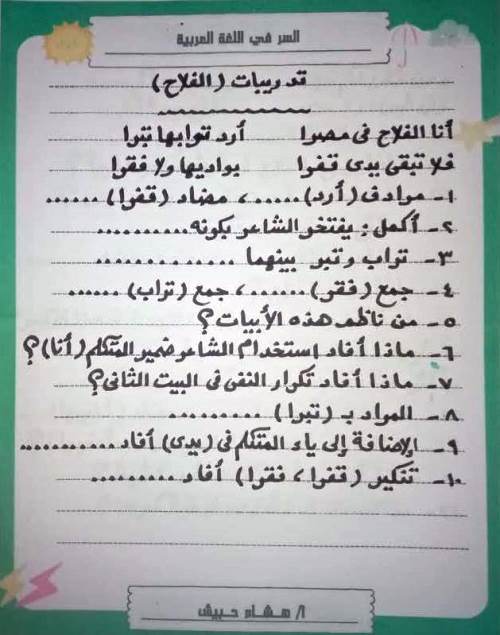 السر في اللغة العربية
تدريبات (الفلاح)
أنا الفلاح فى مصرا أرد ترابها تبرا
فلا تبقى يدى قفرا بواديها ولا فقرا
١- مرادف (أرد) ......، مضاد (قفرا) ......
٢- أكمل: يفتخر الشاعر بكونه ..........
٣- تراب وتبر بينهما ............
٤- جمع (فقر) ......، جمع (تراب) ......
٥- من ناظم هذه الأبيات؟
٦- ماذا أفاد استخدام الشاعر ضمير المتكلم (أنا)؟
٧- ماذا أفاد تكرار النفى فى البيت الثانى؟
٨- المراد بـ (تبرا) .........
٩- الإضافة إلى ياء المتكلم فى (يدى) أفاد ...........
١٠- تنكير (قفرا، فقرا) أفاد .........
أ/ هشام حبيش